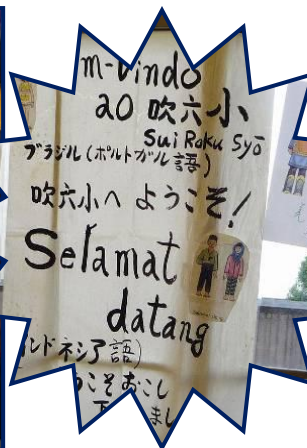 m-vindo
ao 吹六小
Sui Roku Syō
ブラジル(ポルトガル語)
吹六小へ ようこそ!
Selamat
datang
ンドネシア語)
うこそおこし
下 まし